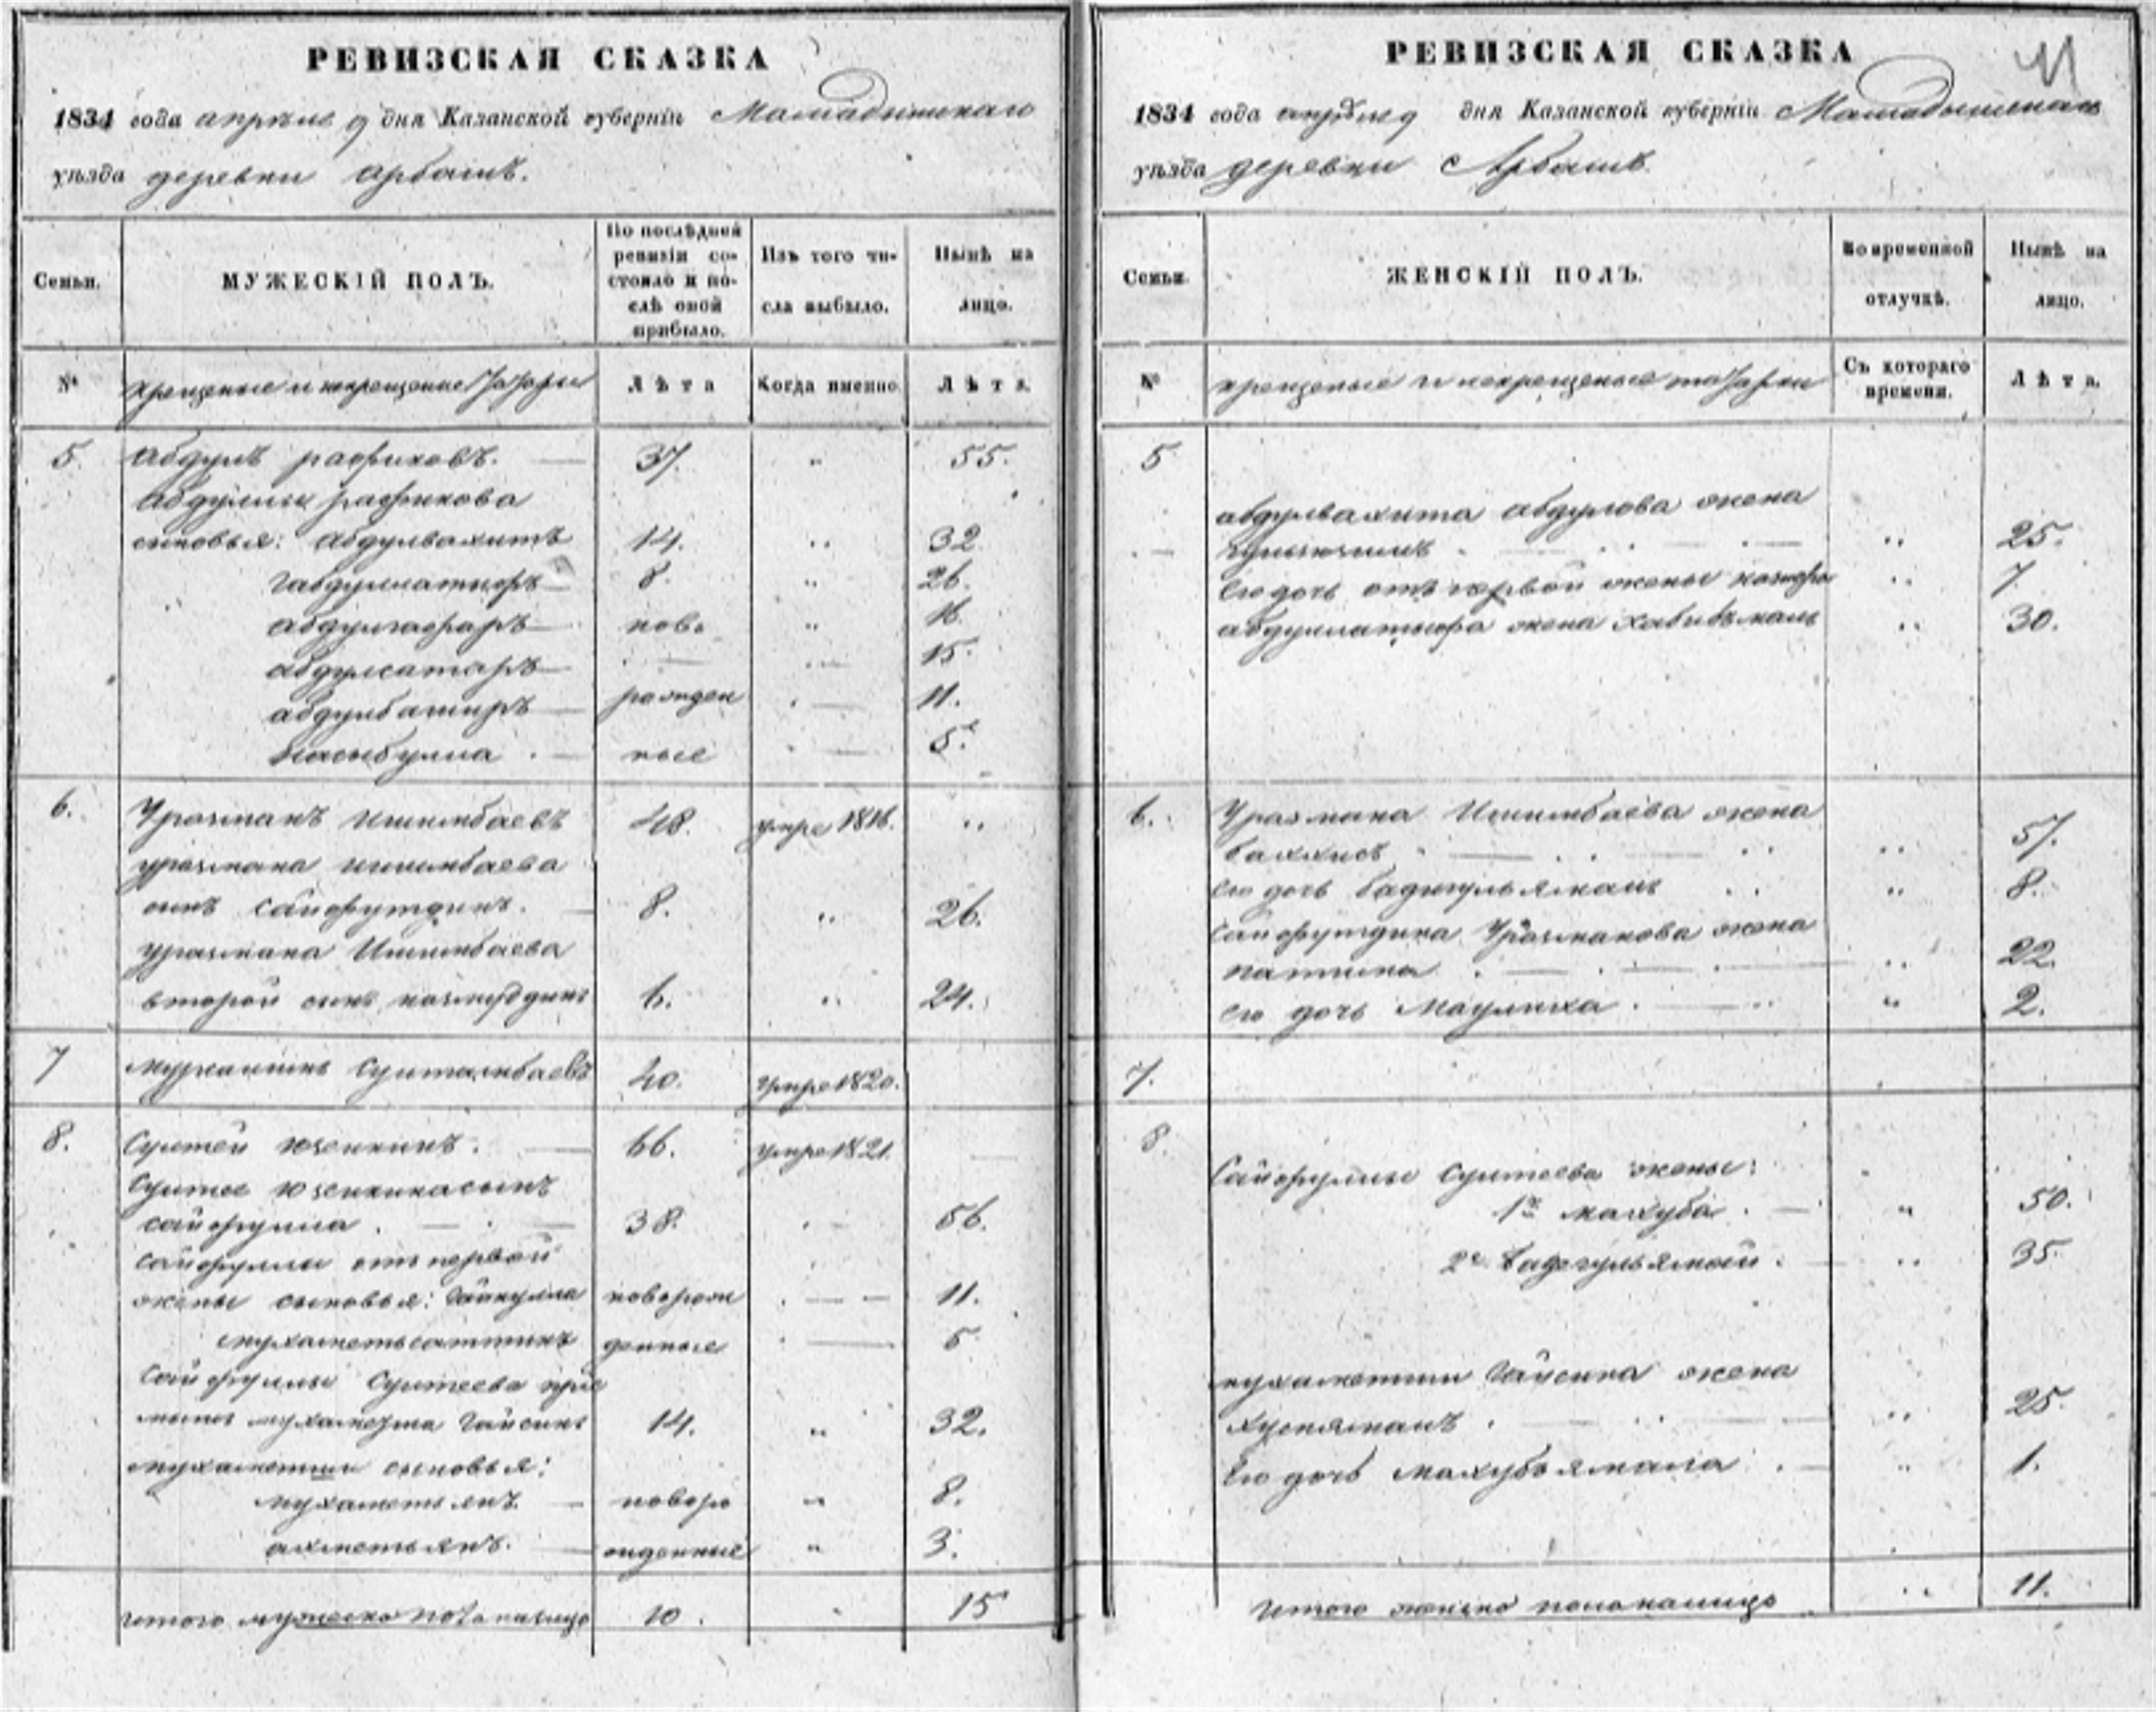 РЕВИЗСКАЯ СКАЗКА
1834 года апреля 9 дня Казанской губерніи Мамадышскаго
уѣзда деревни арбашъ.
Семьи.
МУЖЕСКІЙ ПОЛЪ.
По послѣдней ревизіи состояло и послѣ оной прибыло.
Изъ того числа выбыло.
Нынѣ на лицо.
№ крещеные и некрещеные татары Лѣта Когда именно. Лѣта.
5. абдулъ рафиковъ. 37. " 55.
абдуллы рафикова
сыновья: абдулвахитъ 14. " 32
габдуллатифъ 8. " 26.
абдулгафаръ ново " 16.
абдулсатаръ 15.
абдулбатиръ рожден 11.
насибулла ные 5.
6. Уразманъ Ишимбаевъ 48. умре 1816. "
уразмана ишимбаева
сынъ сайфутдинъ. 8. " 26.
уразмана Ишимбаева
второй сынъ 6. " 24.
7 Султамбаевъ 40. умре 1820.
8. Суптей юзенкинъ. 66. умре 1821.
Суптее юзенкина сынъ
сайфулла 38. 56.
сайфуллы отъ первой
жены сыновья: новорож 11.
денные 5
Сайфуллы Суптеева прие
14. " 32.
сыновья:
мухаметьянъ. новоро " 8.
ахметьянъ. жденные " 3.
итого мужеско пола налицо 10. 15
РЕВИЗСКАЯ СКАЗКА
41
1834 года апреля 9 дня Казанской губерніи Мамадышскаго
уѣзда деревни Арбашъ.
Семьи.
ЖЕНСКІЙ ПОЛЪ.
Во временной отлучкѣ.
Нынѣ на лицо.
№ крещеные и некрещеные татарки Съ котораго времени. Лѣта.
5
абдулвахита абдулова жена
" 25.
его дочь отъ первой жены " 7
абдуллатифа жена хабибъямаль " 30.
6. Уразмана Ишимбаева жена
" 57.
его дочь бадигульямалъ " 8.
сайфутдина Уразманова жена
" 22.
его дочь Маулиха " 2.
7.
8.
Сайфуллы Суптеева жены:
1я махуба " 50.
2я бадегульямал " 35.
жена
" 25.
Его дочь махубъямала " 1.
итого женско пола налицо " 11.